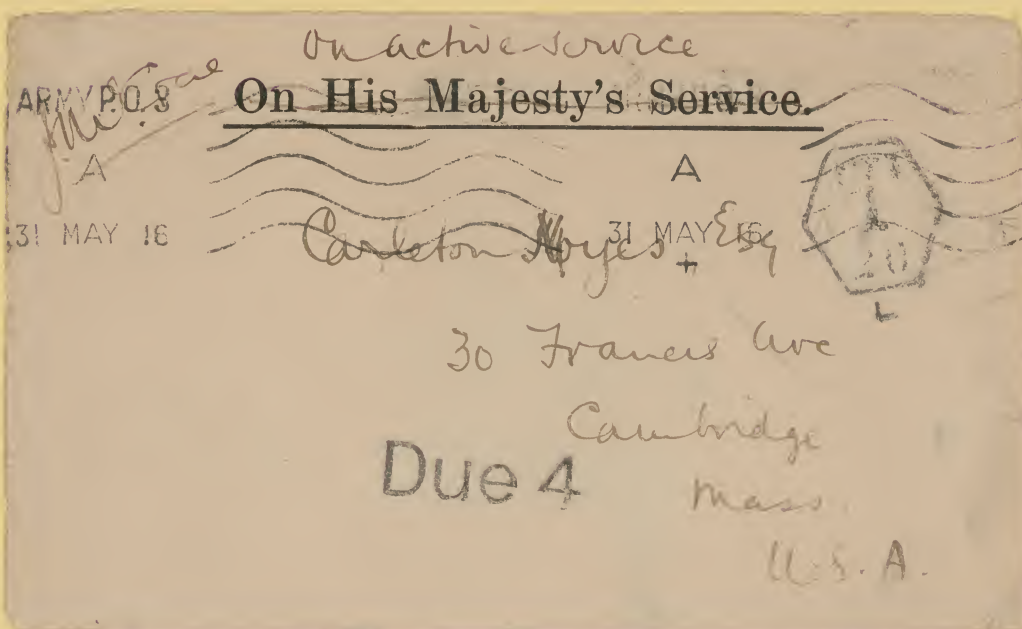 On active service
ARMY P.O. 8
On His Majesty's Service.
A
A
31 MAY 16
31 MAY 16
+
Carleton Noyes Esq
T
20
L
30 Francis Ave
Cambridge
Due 4
Mass.
U.S.A.